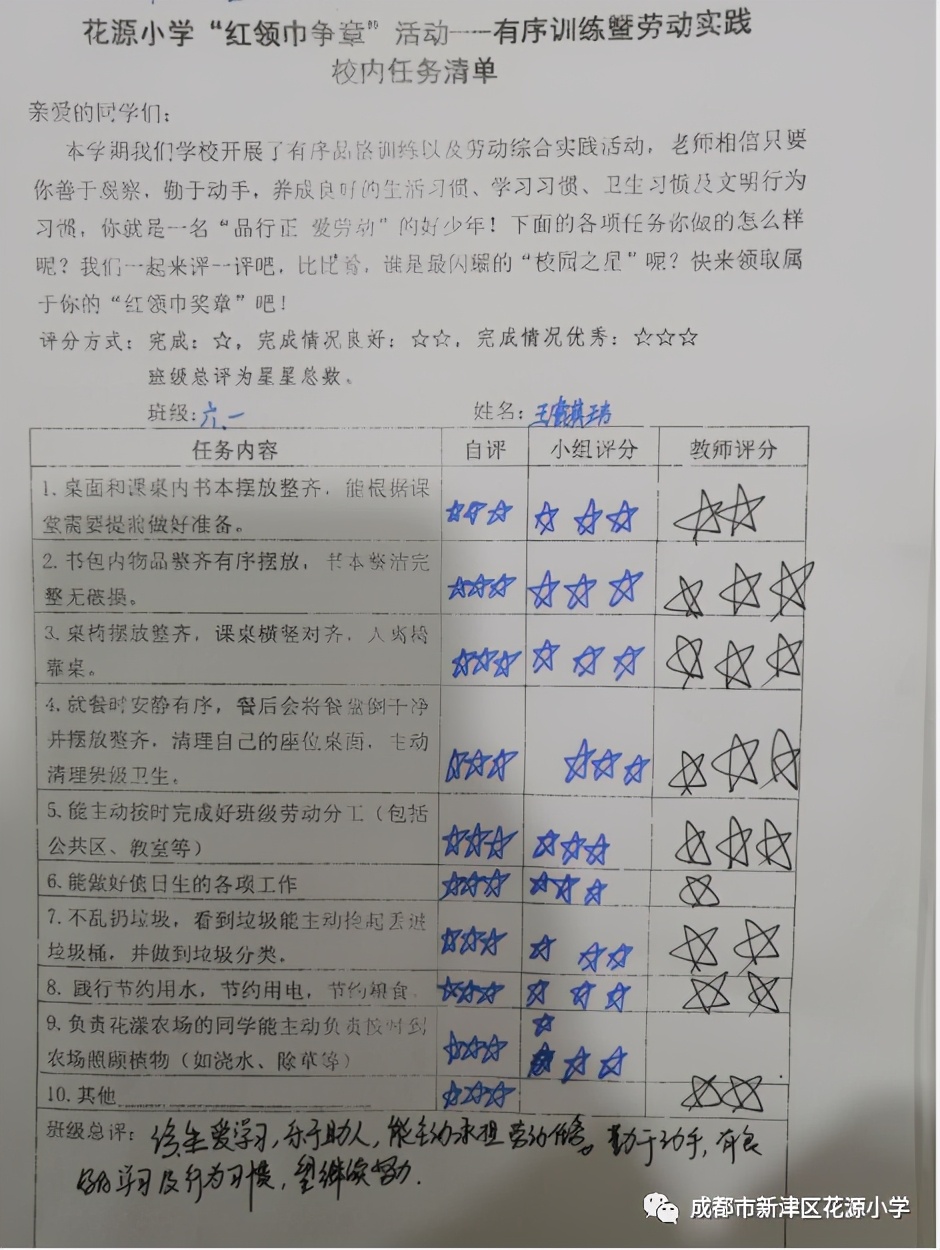 花源小学“红领巾争章”活动——有序训练暨劳动实践
校内任务清单
亲爱的同学们：
本学期我们学校开展了有序品格训练以及劳动综合实践活动，老师相信只要
你善于观察，勤于动手，养成良好的生活习惯、学习习惯、卫生习惯及文明行为
习惯，你就是一名“品行正 爱劳动”的好少年！下面的各项任务你做的怎么样
呢？我们一起来评一评吧，比比看，谁是最闪耀的“校园之星”呢？快来领取属
于你的“红领巾奖章”吧！
评分方式：完成：☆，完成情况良好：☆☆，完成情况优秀：☆☆☆
班级总评为星星总数。
班级：六.一 姓名：王
任务内容 自评 小组评分 教师评分
1.桌面和课桌内书本摆放整齐，能根据课
堂需要提前做好准备。 ☆☆☆ ☆☆☆ ☆☆
2.书包内物品整齐有序摆放，书本整洁完
整无破损。 ☆☆☆ ☆☆☆ ☆☆☆
3.桌椅摆放整齐，课桌横竖对齐，人离椅
靠桌。 ☆☆☆ ☆☆☆ ☆☆☆
4.就餐时安静有序，餐后会将餐盘倒干净
并摆放整齐，清理自己的座位桌面，主动
清理班级卫生。 ☆☆☆ ☆☆☆ ☆☆☆
5.能主动按时完成好班级劳动分工（包括
公共区、教室等） ☆☆☆ ☆☆☆ ☆☆☆
6.能做好值日生的各项工作 ☆☆☆ ☆☆☆ ☆
7.不乱扔垃圾，看到垃圾能主动捡起丢进
垃圾桶，并做到垃圾分类。 ☆☆☆ ☆☆☆ ☆☆
8.践行节约用水，节约用电，节约粮食。 ☆☆☆ ☆☆☆ ☆☆
9.负责花漾农场的同学能主动负责按时到 ☆
农场照顾植物（如浇水、除草等） ☆☆☆ ☆☆
10.其他 ☆☆☆ ☆☆
班级总评：该生爱学习，乐于助人，能主动承担劳动任务。勤于动手，有良
好的学习及行为习惯，望继续努力.
成都市新津区花源小学